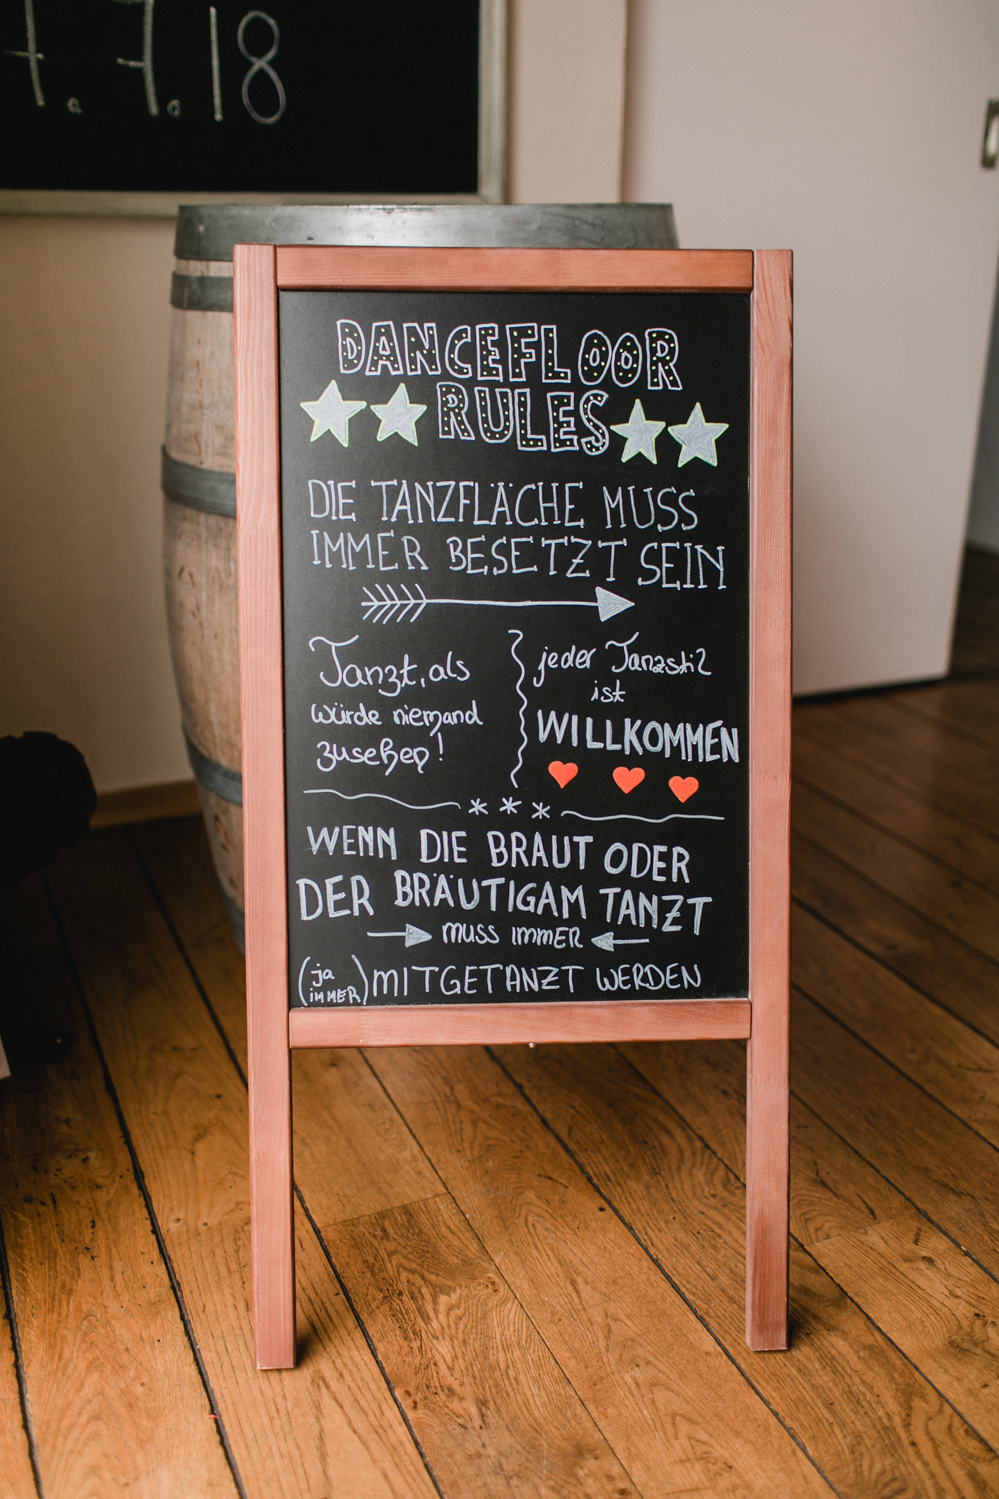 7.7.18
DANCEFLOOR
RULES
DIE TANZFLÄCHE MUSS
IMMER BESETZT SEIN
Tanzt, als
würde niemand
zusehen!
jeder Tanzstil
ist
WILLKOMMEN
WENN DIE BRAUT ODER
DER BRÄUTIGAM TANZT
muss IMMER
(ja
IMMER) MITGETANZT WERDEN